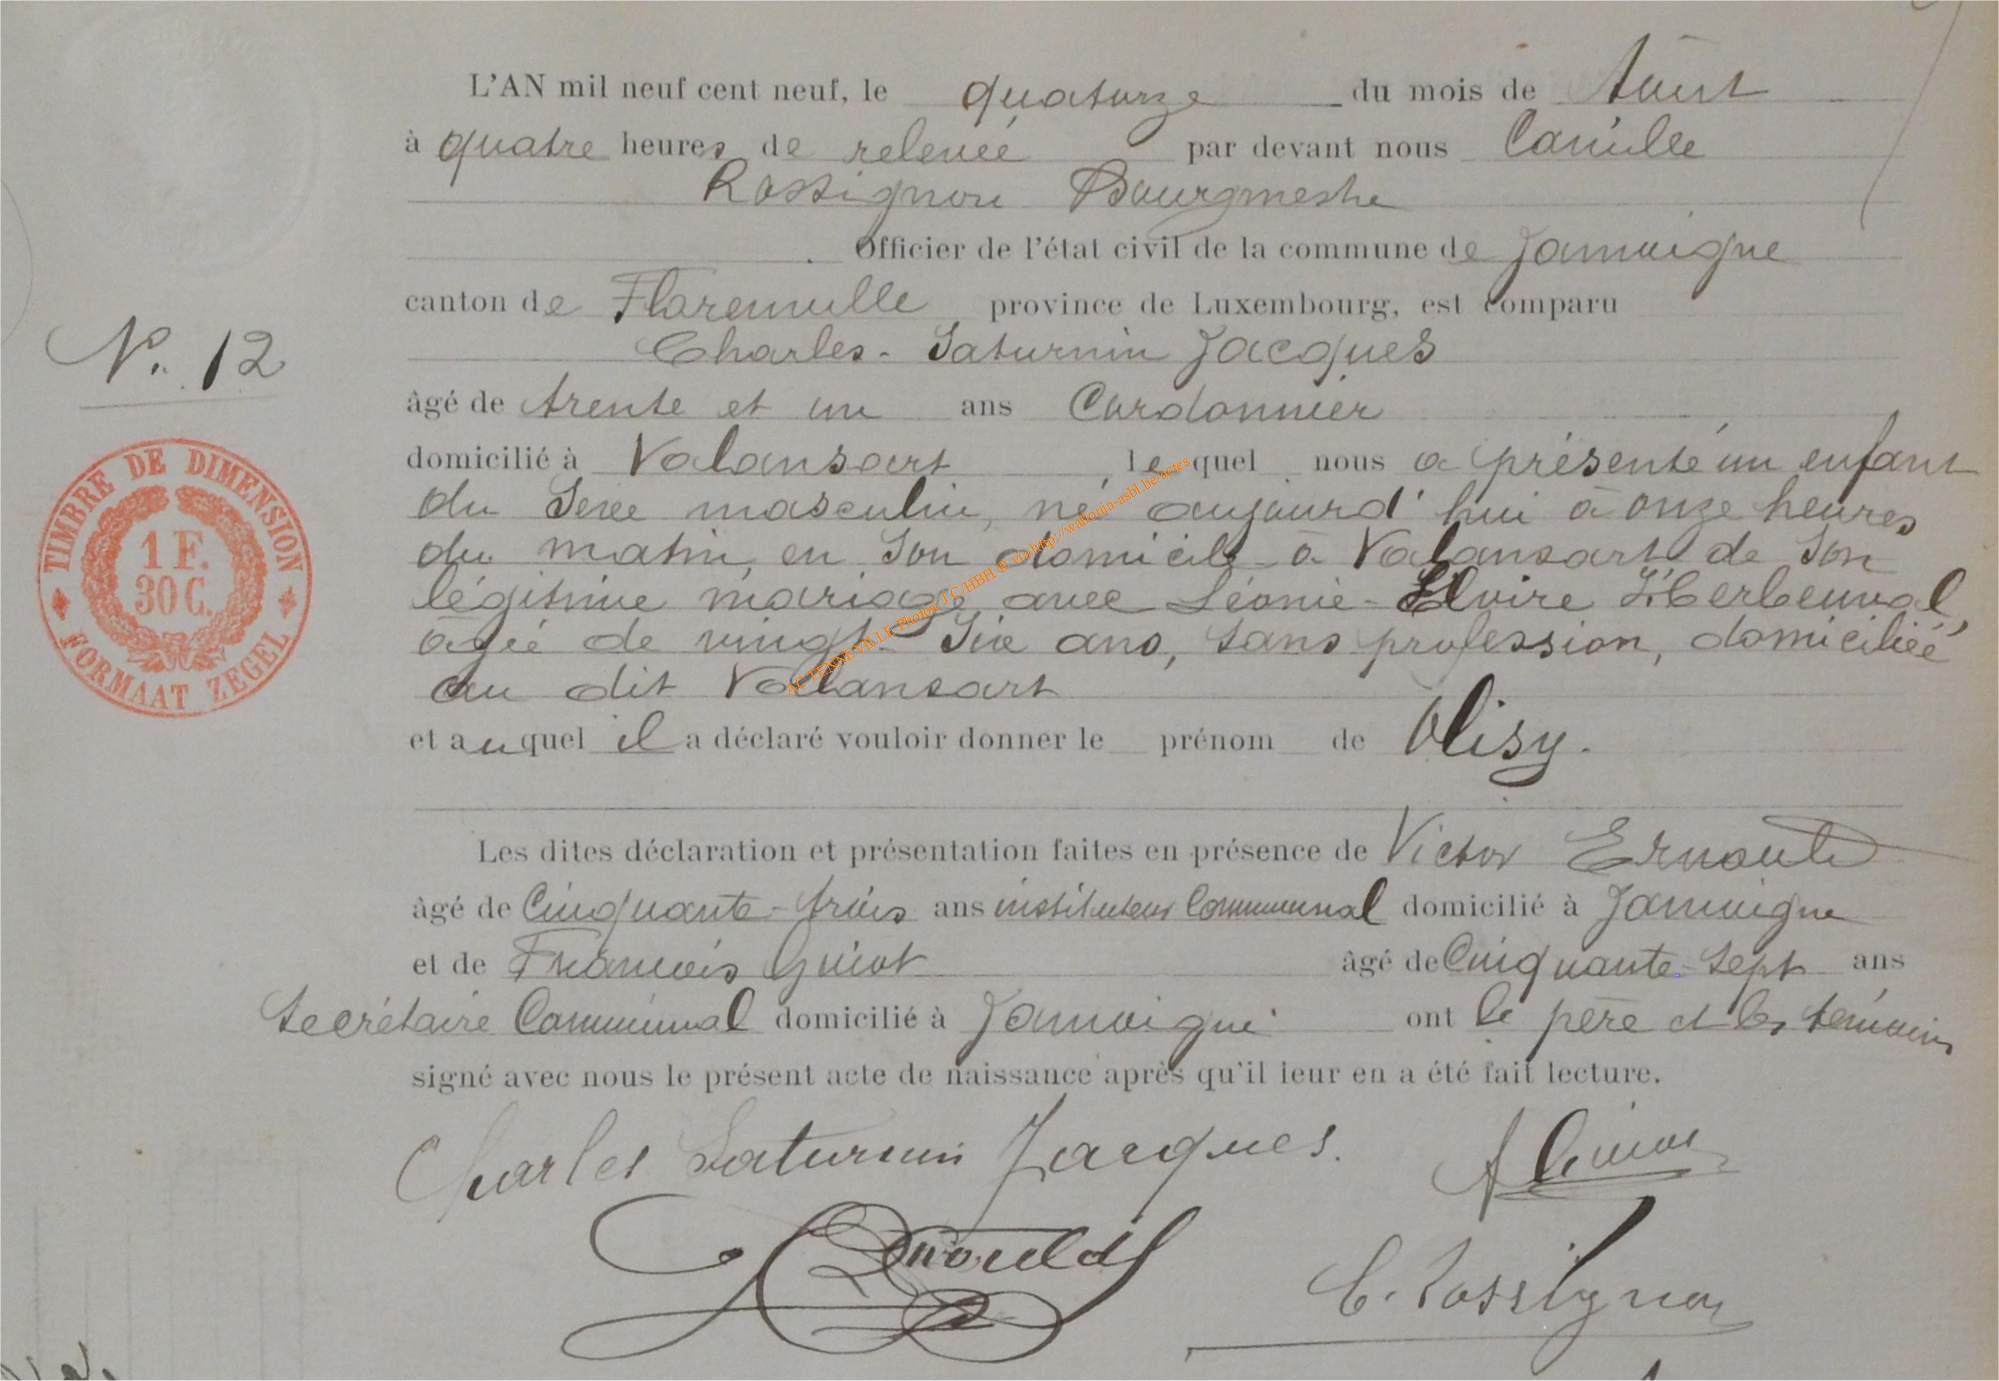 L'AN mil neuf cent neuf, le quatorze du mois de Août
à quatre heures de relevée par devant nous Camille
Rossignon Bourgmestre
Officier de l'état civil de la commune de Jamoigne
canton de Florenville province de Luxembourg, est comparu
N°. 12
Charles-Saturnin Jacques
âgé de trente et un ans Cordonnier
domicilié à Valansart lequel nous a présenté un enfant
du Sexe masculin, né aujourd'hui à onze heures
du matin, en Son domicile à Valansart de Son
légitime mariage avec Léonie-Elvire Herbeuval,
âgée de vingt-Six ans, Sans profession, domiciliée
au dit Valansart
et auquel il a déclaré vouloir donner le prénom de Olisy.
TIMBRE DE DIMENSION
1 F.
30 C.
FORMAAT ZEGEL
Les dites déclaration et présentation faites en présence de Victor Ernould
âgé de Cinquante-trois ans instituteur Communal domicilié à Jamoigne
et de François Guiot âgé de Cinquante-Sept ans
Secrétaire Communal domicilié à Jamoigne ont le père et les témoins
signé avec nous le présent acte de naissance après qu'il leur en a été fait lecture.
Charles Saturnin Jacques.
Ernould
C. Rossignon